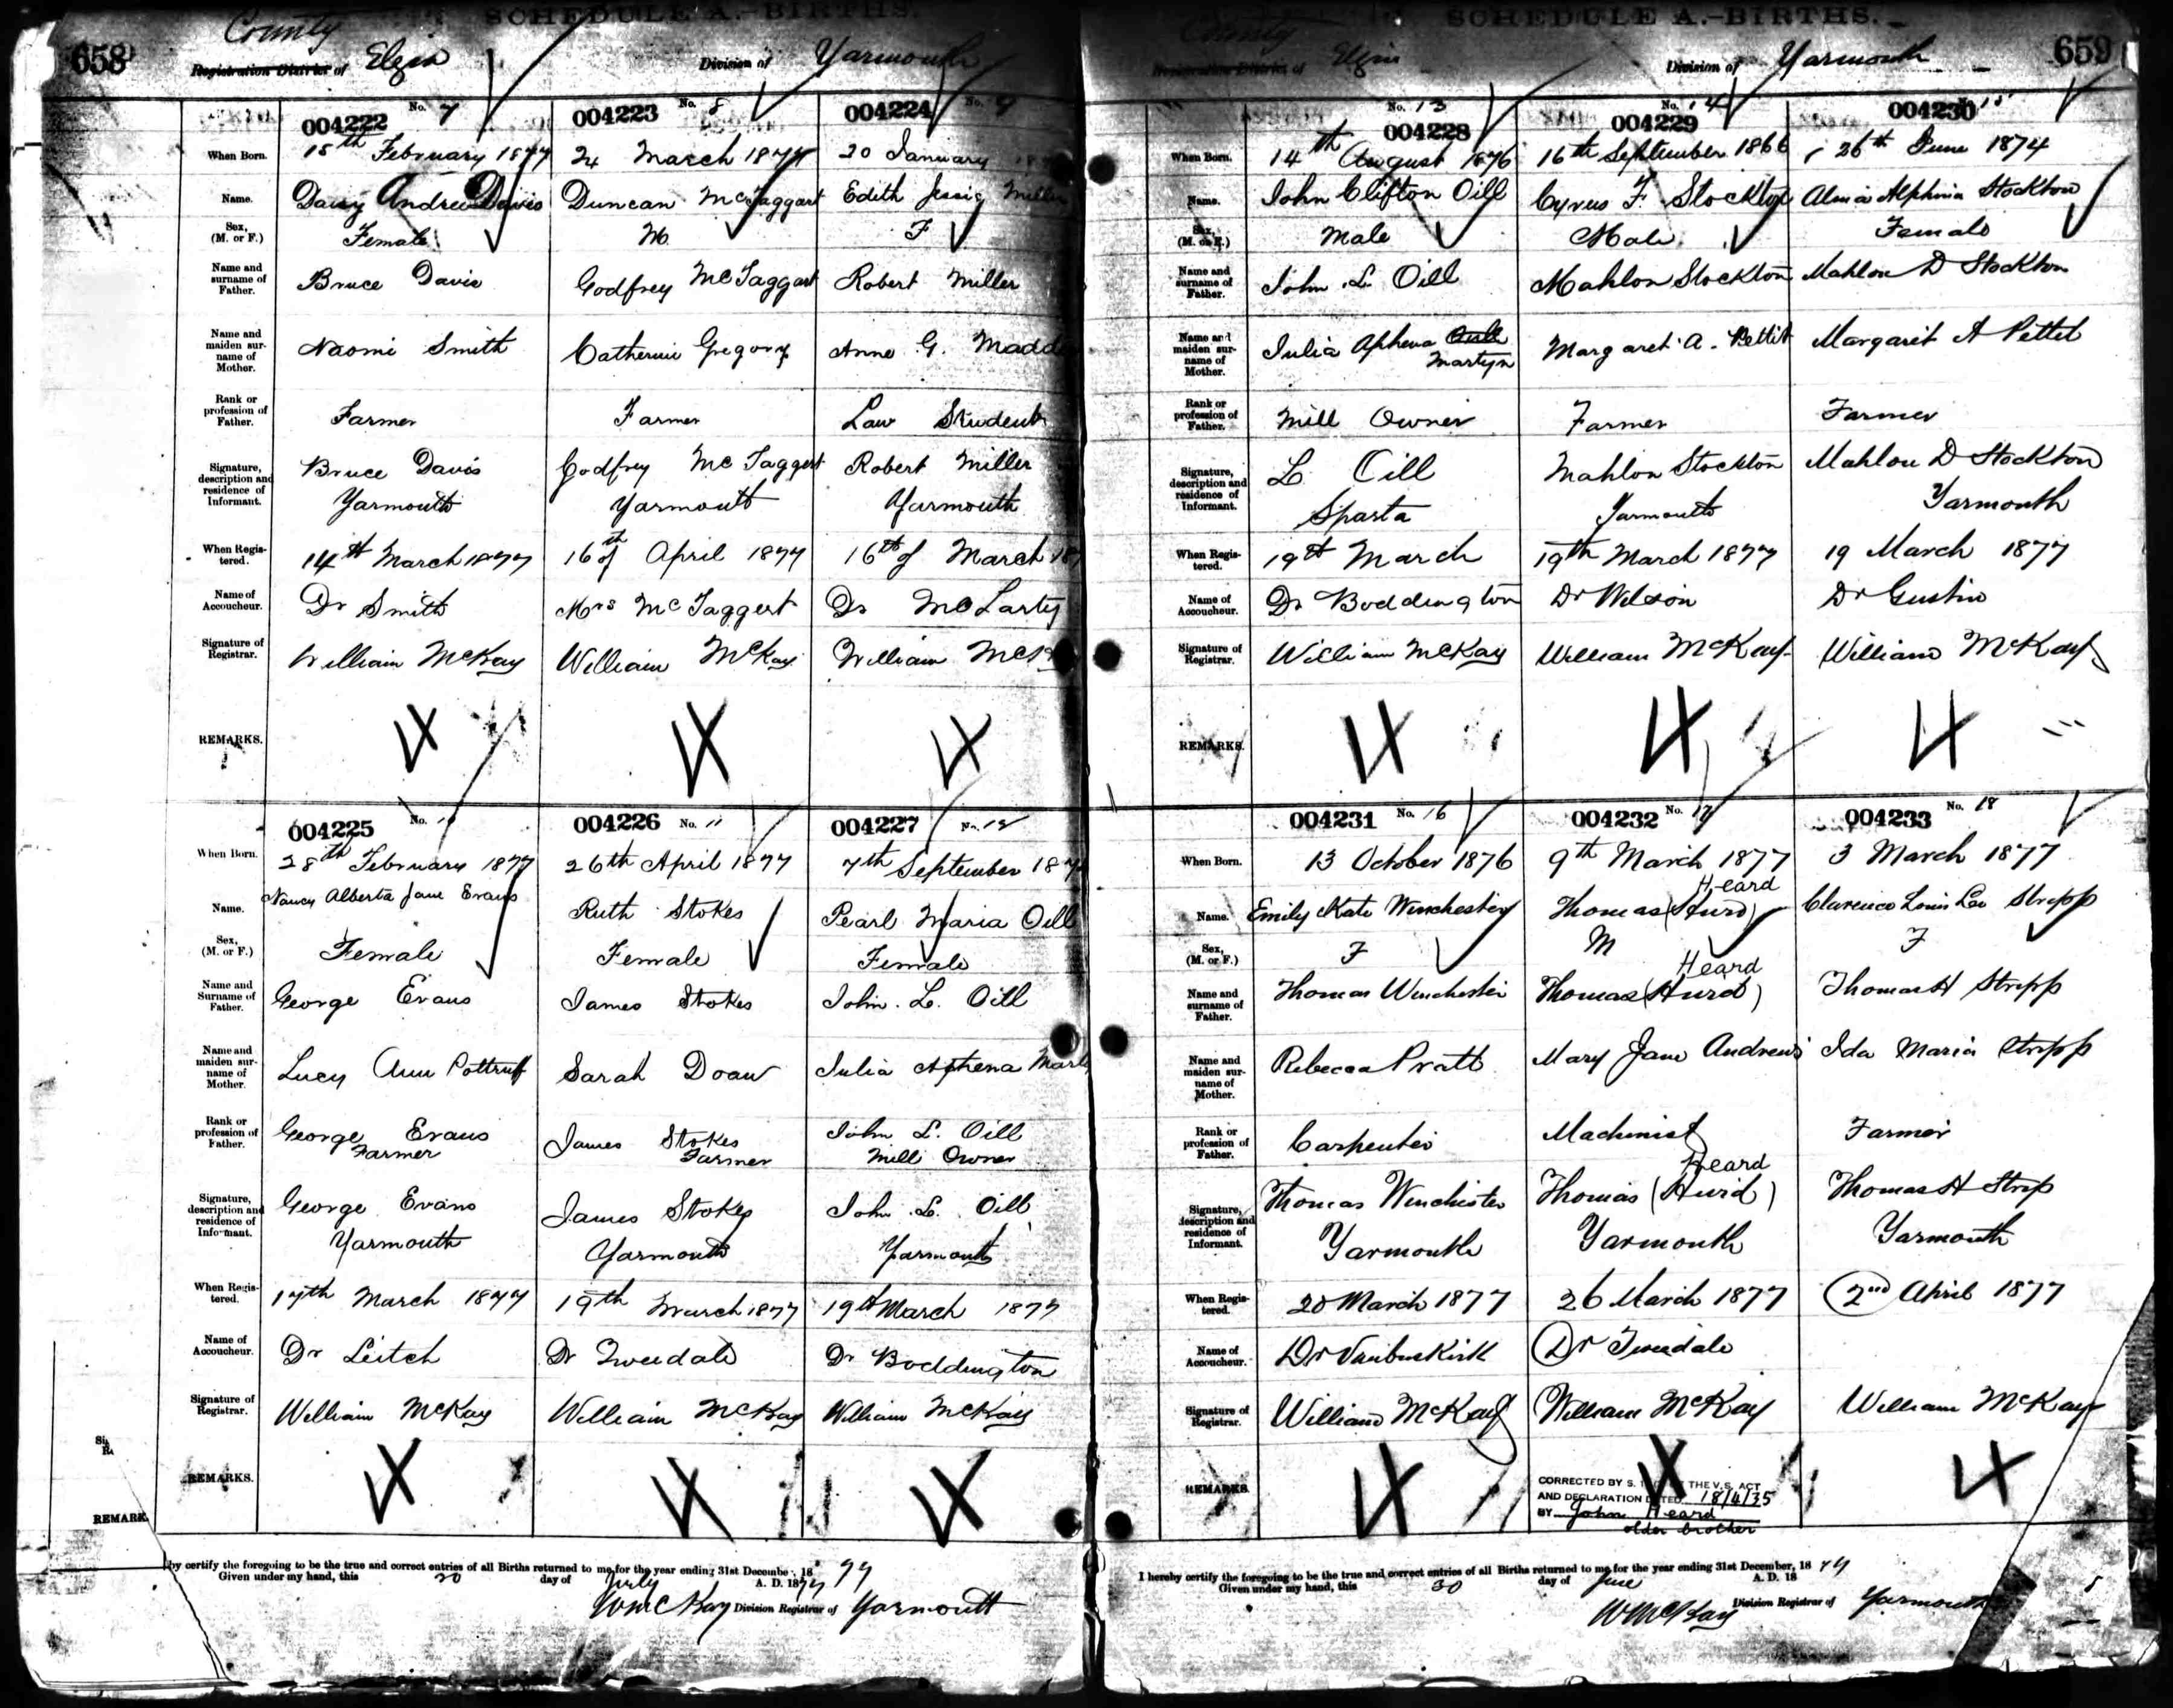 SCHEDULE A.-BIRTHS.
658
County
Registration District of Elgin Division of Yarmouth
No. 7 No. 8 No. 9
004222 004223 004224
When Born. 18th February 1877 24 March 1877 20 January
Name. Daisy Andrew Davis Duncan McTaggart Edith Jessie Miller
Sex, (M. or F.) Female M. F
Name and surname of Father. Bruce Davis Godfrey McTaggart Robert Miller
Name and maiden surname of Mother. Naomi Smith Catherine Gregory Anne G.
Rank or profession of Father. Farmer Farmer Law Student
Signature, description and residence of Informant. Bruce Davis Godfrey McTaggert Robert Miller
Yarmouth Yarmouth Yarmouth
When Registered. 14th March 1877 16th of April 1877 16th of March
Name of Accoucheur. Dr Smith Mrs McTaggert Dr McLarty
Signature of Registrar. William McKay William McKay William
REMARKS.
004225 No. 10 004226 No. 11 004227 No. 12
When Born. 28th February 1877 26th April 1877 7th September
Name. Nancy Alberta Jane Evans Ruth Stokes Pearl Maria Oill
Sex, (M. or F.) Female Female Female
Name and Surname of Father. George Evans James Stokes John L. Oill
Name and maiden surname of Mother. Lucy Ann Pottruff Sarah Doan Julia Aphena
Rank or profession of Father. George Evans James Stokes John L. Oill
Farmer Farmer Mill Owner
Signature, description and residence of Informant. George Evans James Stokes John L. Oill
Yarmouth Yarmouth Yarmouth
When Registered. 17th March 1877 19th March 1877 19th March 1877
Name of Accoucheur. Dr Leitch Dr Tweedale Dr Boddington
Signature of Registrar. William McKay William McKay William McKay
REMARKS.
REMARK
by certify the foregoing to be the true and correct entries of all Births returned to me for the year ending 31st December, 18 77
Given under my hand, this 20 day of July A. D. 1877
Wm McKay Division Registrar of Yarmouth
SCHEDULE A.-BIRTHS.
659
County
Registration District of Elgin Division of Yarmouth
No. 13 No. 14 15
004228 004229 004230
When Born. 14th August 1876 16th September 1866 26th June 1874
Name. John Clifton Oill Cyrus F. Stockton Almia Alphinia Stockton
Sex, (M. or F.) Male Male Female
Name and surname of Father. John L. Oill Mahlon Stockton Mahlon D Stockton
Name and maiden surname of Mother. Julia Aphena Oill Martyn Margaret A. Pettit Margaret A Pettet
Rank or profession of Father. Mill Owner Farmer Farmer
Signature, description and residence of Informant. L Oill Mahlon Stockton Mahlon D Stockton
Sparta Yarmouth Yarmouth
When Registered. 19th March 19th March 1877 19 March 1877
Name of Accoucheur. Dr Boddington Dr Wilson Dr Gustin
Signature of Registrar. William McKay William McKay William McKay
REMARKS.
004231 No. 16 004232 No. 17 004233 No. 18
When Born. 13 October 1876 9th March 1877 3 March 1877
Heard
Name. Emily Kate Winchester Thomas (Hurd) Clarence Louis Lee Stripp
Sex, (M. or F.) F M F
Heard
Name and surname of Father. Thomas Winchester Thomas (Hurd) Thomas H Stripp
Name and maiden surname of Mother. Rebecca Pratt Mary Jane Andrews Ida Maria Stripp
Rank or profession of Father. Carpenter Machinist Farmer
Heard
Signature, description and residence of Informant. Thomas Winchester Thomas (Hurd) Thomas H Strip
Yarmouth Yarmouth Yarmouth
When Registered. 20 March 1877 26 March 1877 2nd April 1877
Name of Accoucheur. Dr Vanbuskirk Dr Tweedale
Signature of Registrar. William McKay William McKay William McKay
REMARKS
CORRECTED BY S. THE V.S. ACT
AND DECLARATION DATED 18/4/35
BY John Heard
older brother
I hereby certify the foregoing to be the true and correct entries of all Births returned to me for the year ending 31st December, 18 77
Given under my hand, this 30 day of June A. D. 18
W McKay Division Registrar of Yarmouth